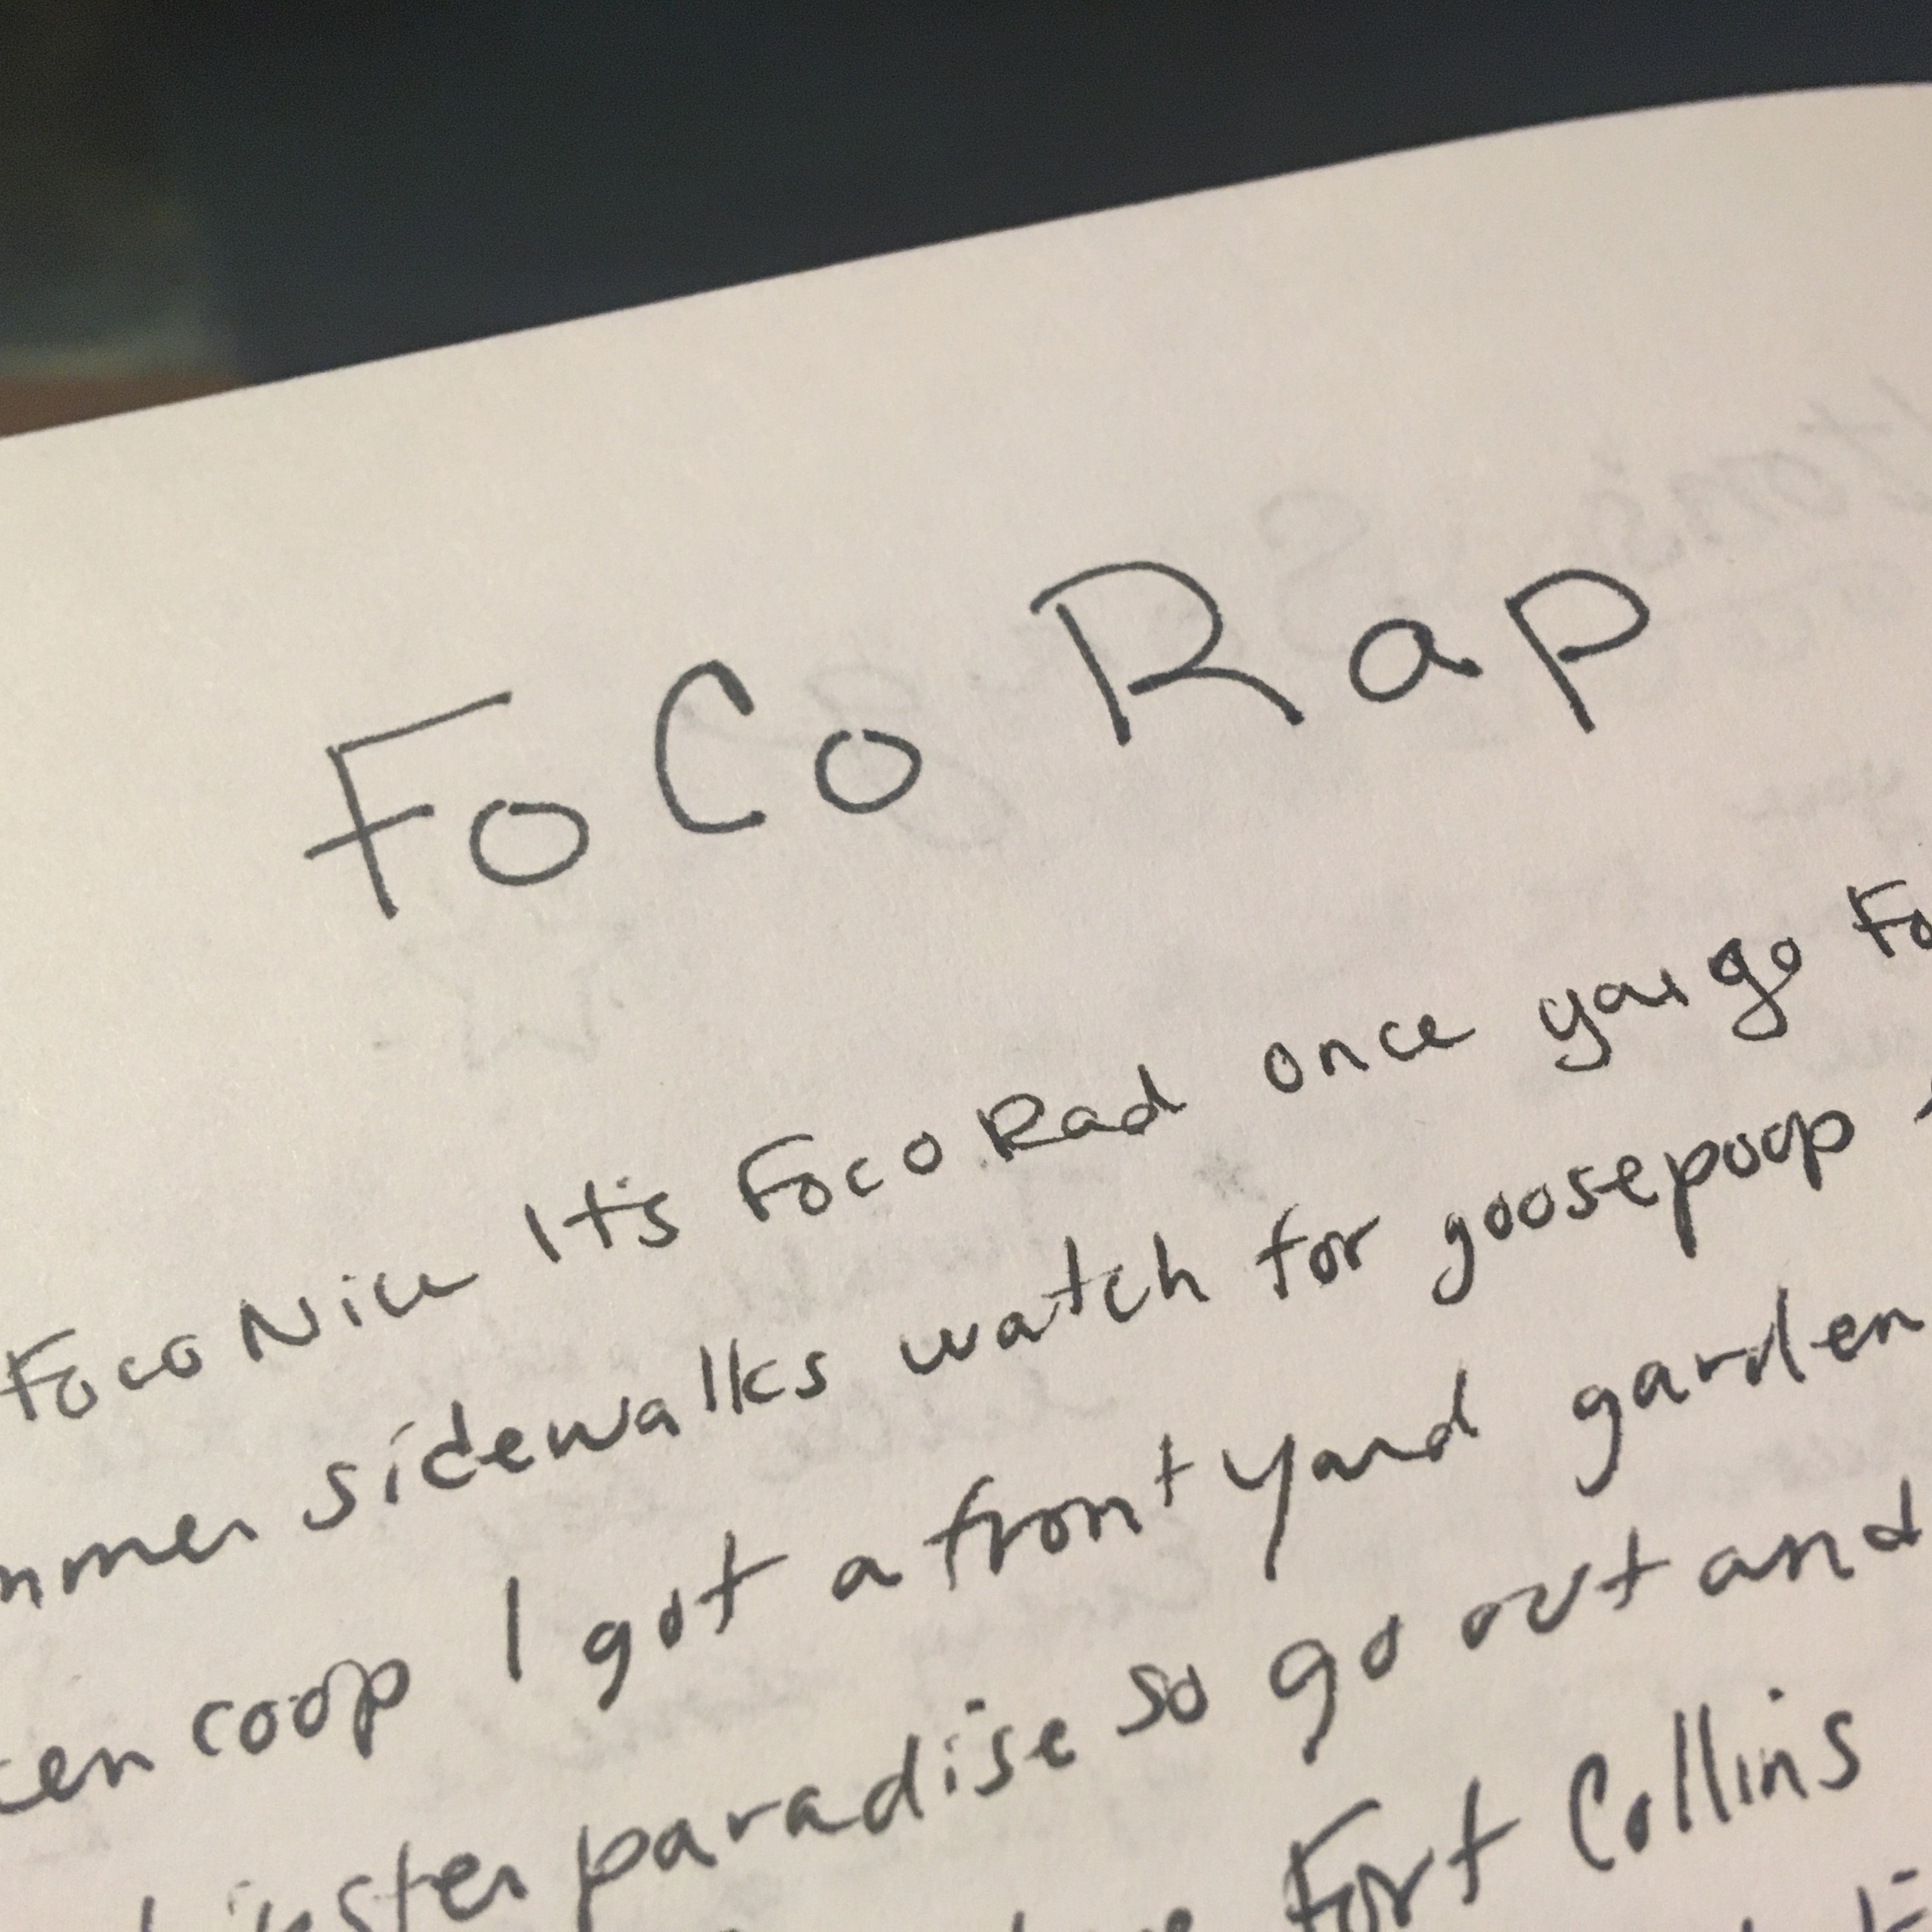 FoCo Rap
Foco Nice It's Foco Rad once you go Fo
mmer sidewalks watch for goosepoop
en coop I got a front yard garden
paradise so go out and
Fort Collins